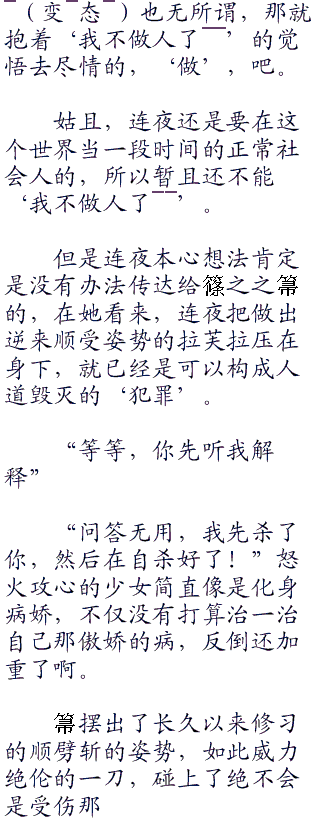 （变 态 ）也无所谓，那就
抱着‘我不做人了——’的觉
悟去尽情的，‘做’，吧。
姑且，连夜还是要在这
个世界当一段时间的正常社
会人的，所以暂且还不能
‘我不做人了——’。
但是连夜本心想法肯定
是没有办法传达给篠之之箒
的，在她看来，连夜把做出
逆来顺受姿势的拉芙拉压在
身下，就已经是可以构成人
道毁灭的‘犯罪’。
“等等，你先听我解
释”
“问答无用，我先杀了
你，然后在自杀好了！”怒
火攻心的少女简直像是化身
病娇，不仅没有打算治一治
自己那傲娇的病，反倒还加
重了啊。
箒摆出了长久以来修习
的顺劈斩的姿势，如此威力
绝伦的一刀，碰上了绝不会
是受伤那